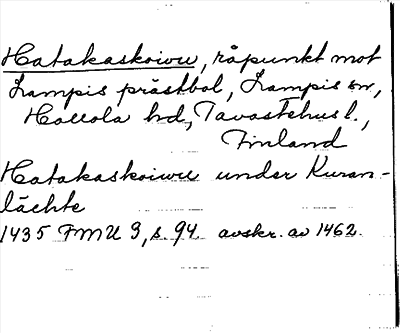 Hatakaskoivu, råpunkt mot
Lampis prästbol, Lampis sn,
Hollola hd, Tavastehus l.,
Finland
Hatakaskoiwu under Kuran-
lächte
1435 FMU 3, s. 94 avskr. av 1462.